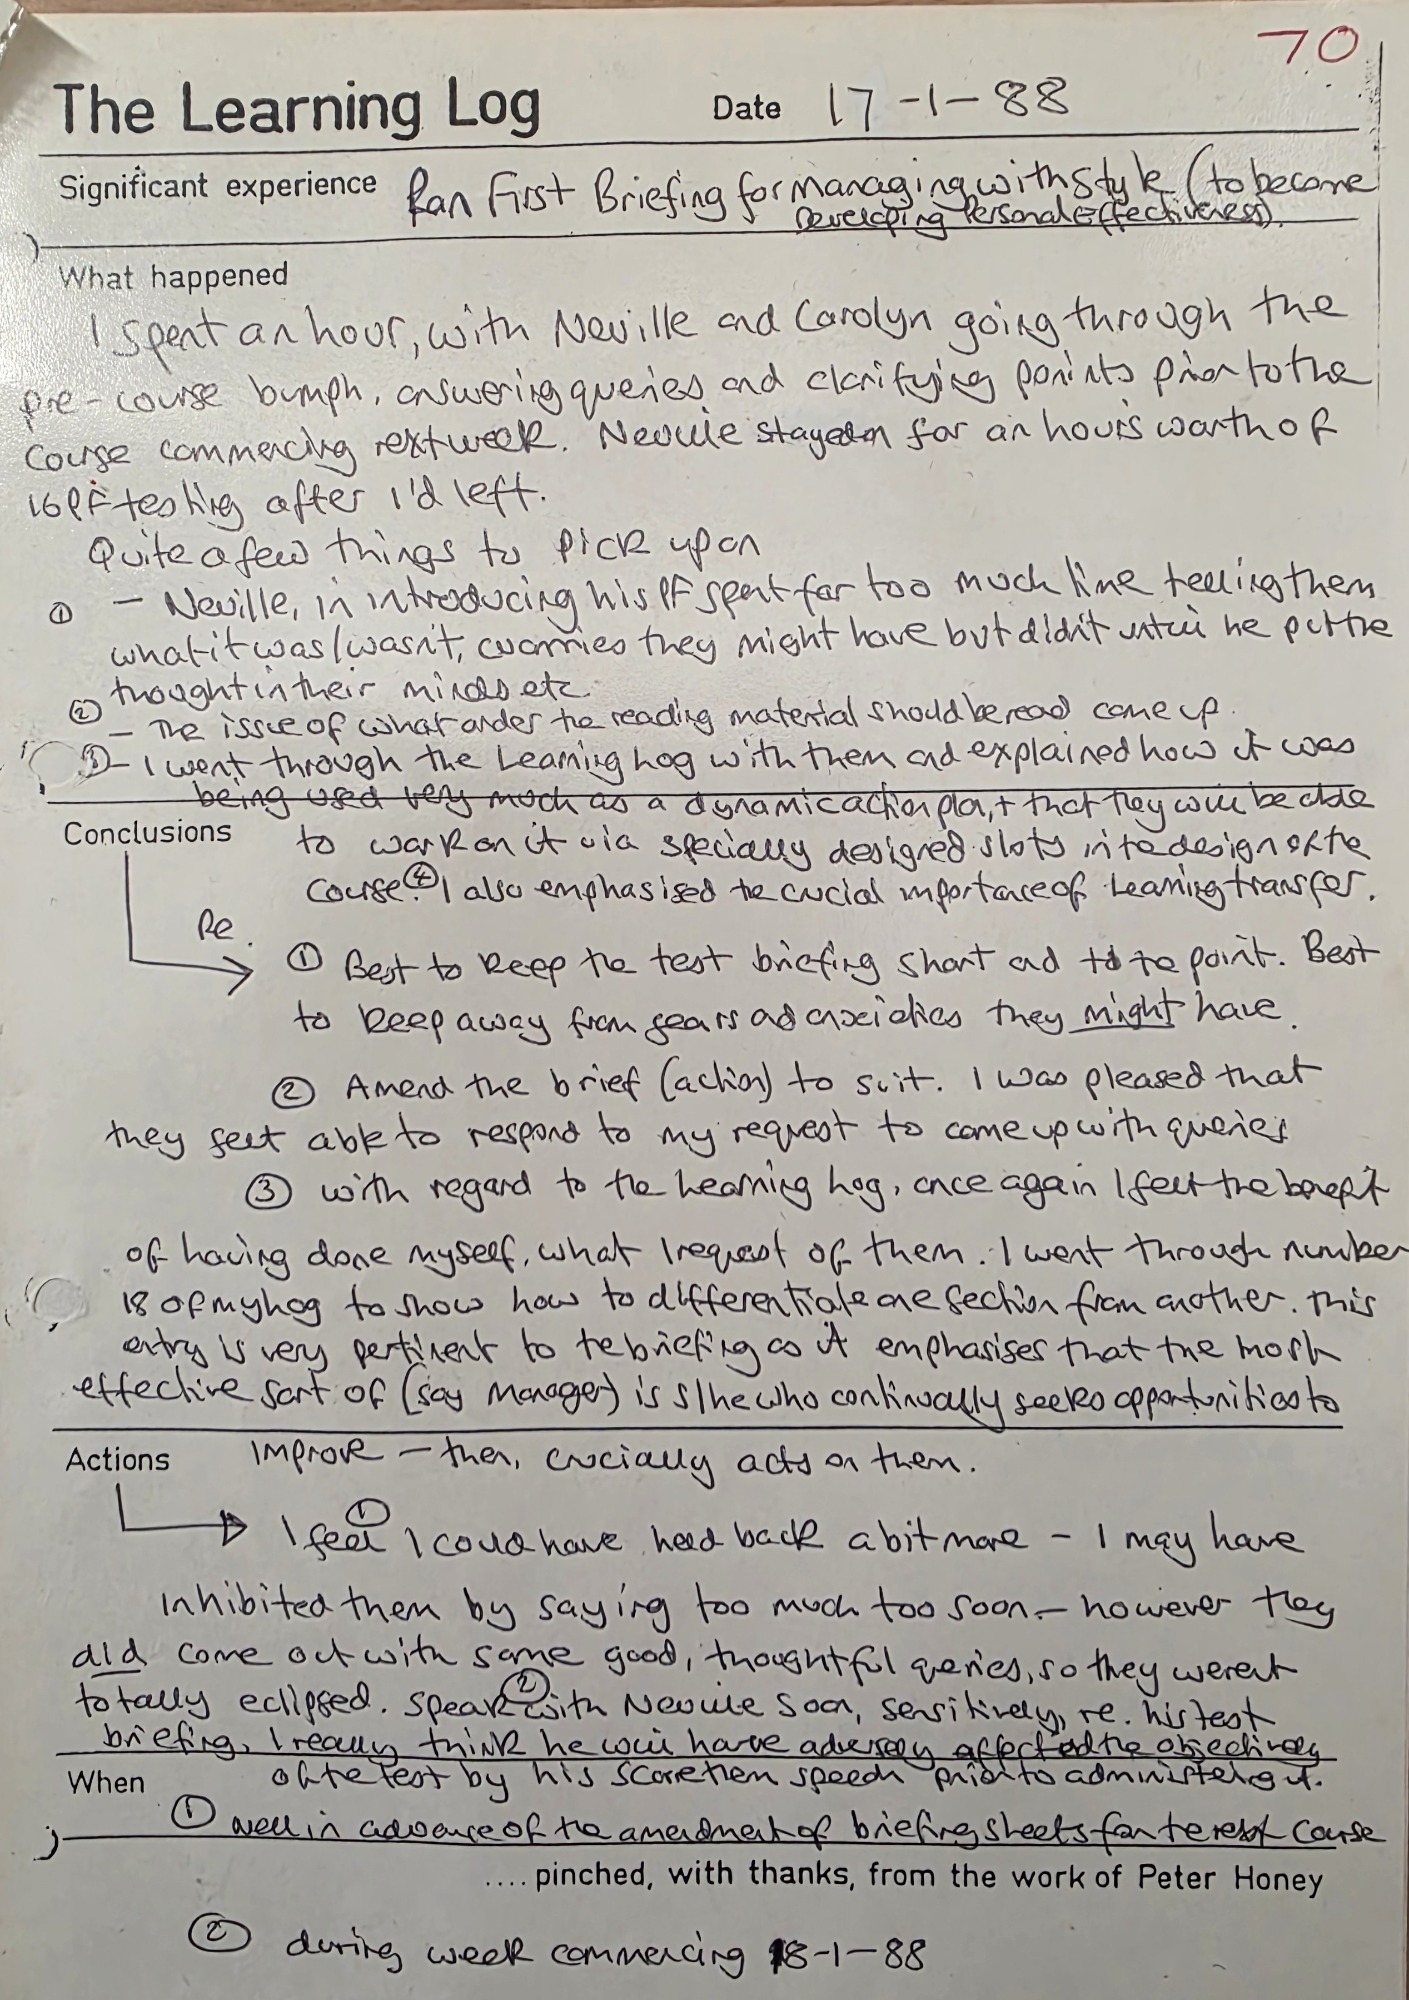 70
The Learning Log Date 17-1-88
Significant experience Ran First Briefing for Managing with Style (to become
Developing Personal Effectiveness).
What happened
I spent an hour, with Neville and Carolyn going through the
pre-course bumph, answering queries and clarifying points prior to the
course commencing next week. Neville stayed on for an hour's worth of
16PF testing after I'd left.
Quite a few things to pick up on
① - Neville, in introducing his PF spent far too much time telling them
what it was/wasn't, worries they might have but didn't until he put the
thought in their minds etc.
② - The issue of what order the reading material should be read came up.
③ - I went through the Learning Log with them and explained how it was
being used very much as a dynamic action plan, + that they will be able
Conclusions to work on it via specially designed slots in the design of the
course. ④ I also emphasised the crucial importance of Learning transfer.
Re.
① Best to keep the test briefing short and to the point. Best
to keep away from fears and anxieties they might have.
② Amend the brief (action) to suit. I was pleased that
they felt able to respond to my request to come up with queries
③ with regard to the Learning Log, once again I felt the benefit
of having done myself, what I request of them. I went through number
18 of my Log to show how to differentiate one section from another. This
entry is very pertinent to the briefing as it emphasises that the most
effective sort of (say Manager) is s/he who continually seeks opportunities to
Actions improve - then, crucially acts on them.
① I feel I could have held back a bit more - I may have
inhibited them by saying too much too soon - however they
did come out with some good, thoughtful queries, so they weren't
totally eclipsed. ② Speak with Neville soon, sensitively, re. his test
briefing, I really think he will have adversely affected the objectively
When of the test by his scare them speech prior to administering it.
① well in advance of the amendment of briefing sheets for the next course
.... pinched, with thanks, from the work of Peter Honey
② during week commencing 18-1-88